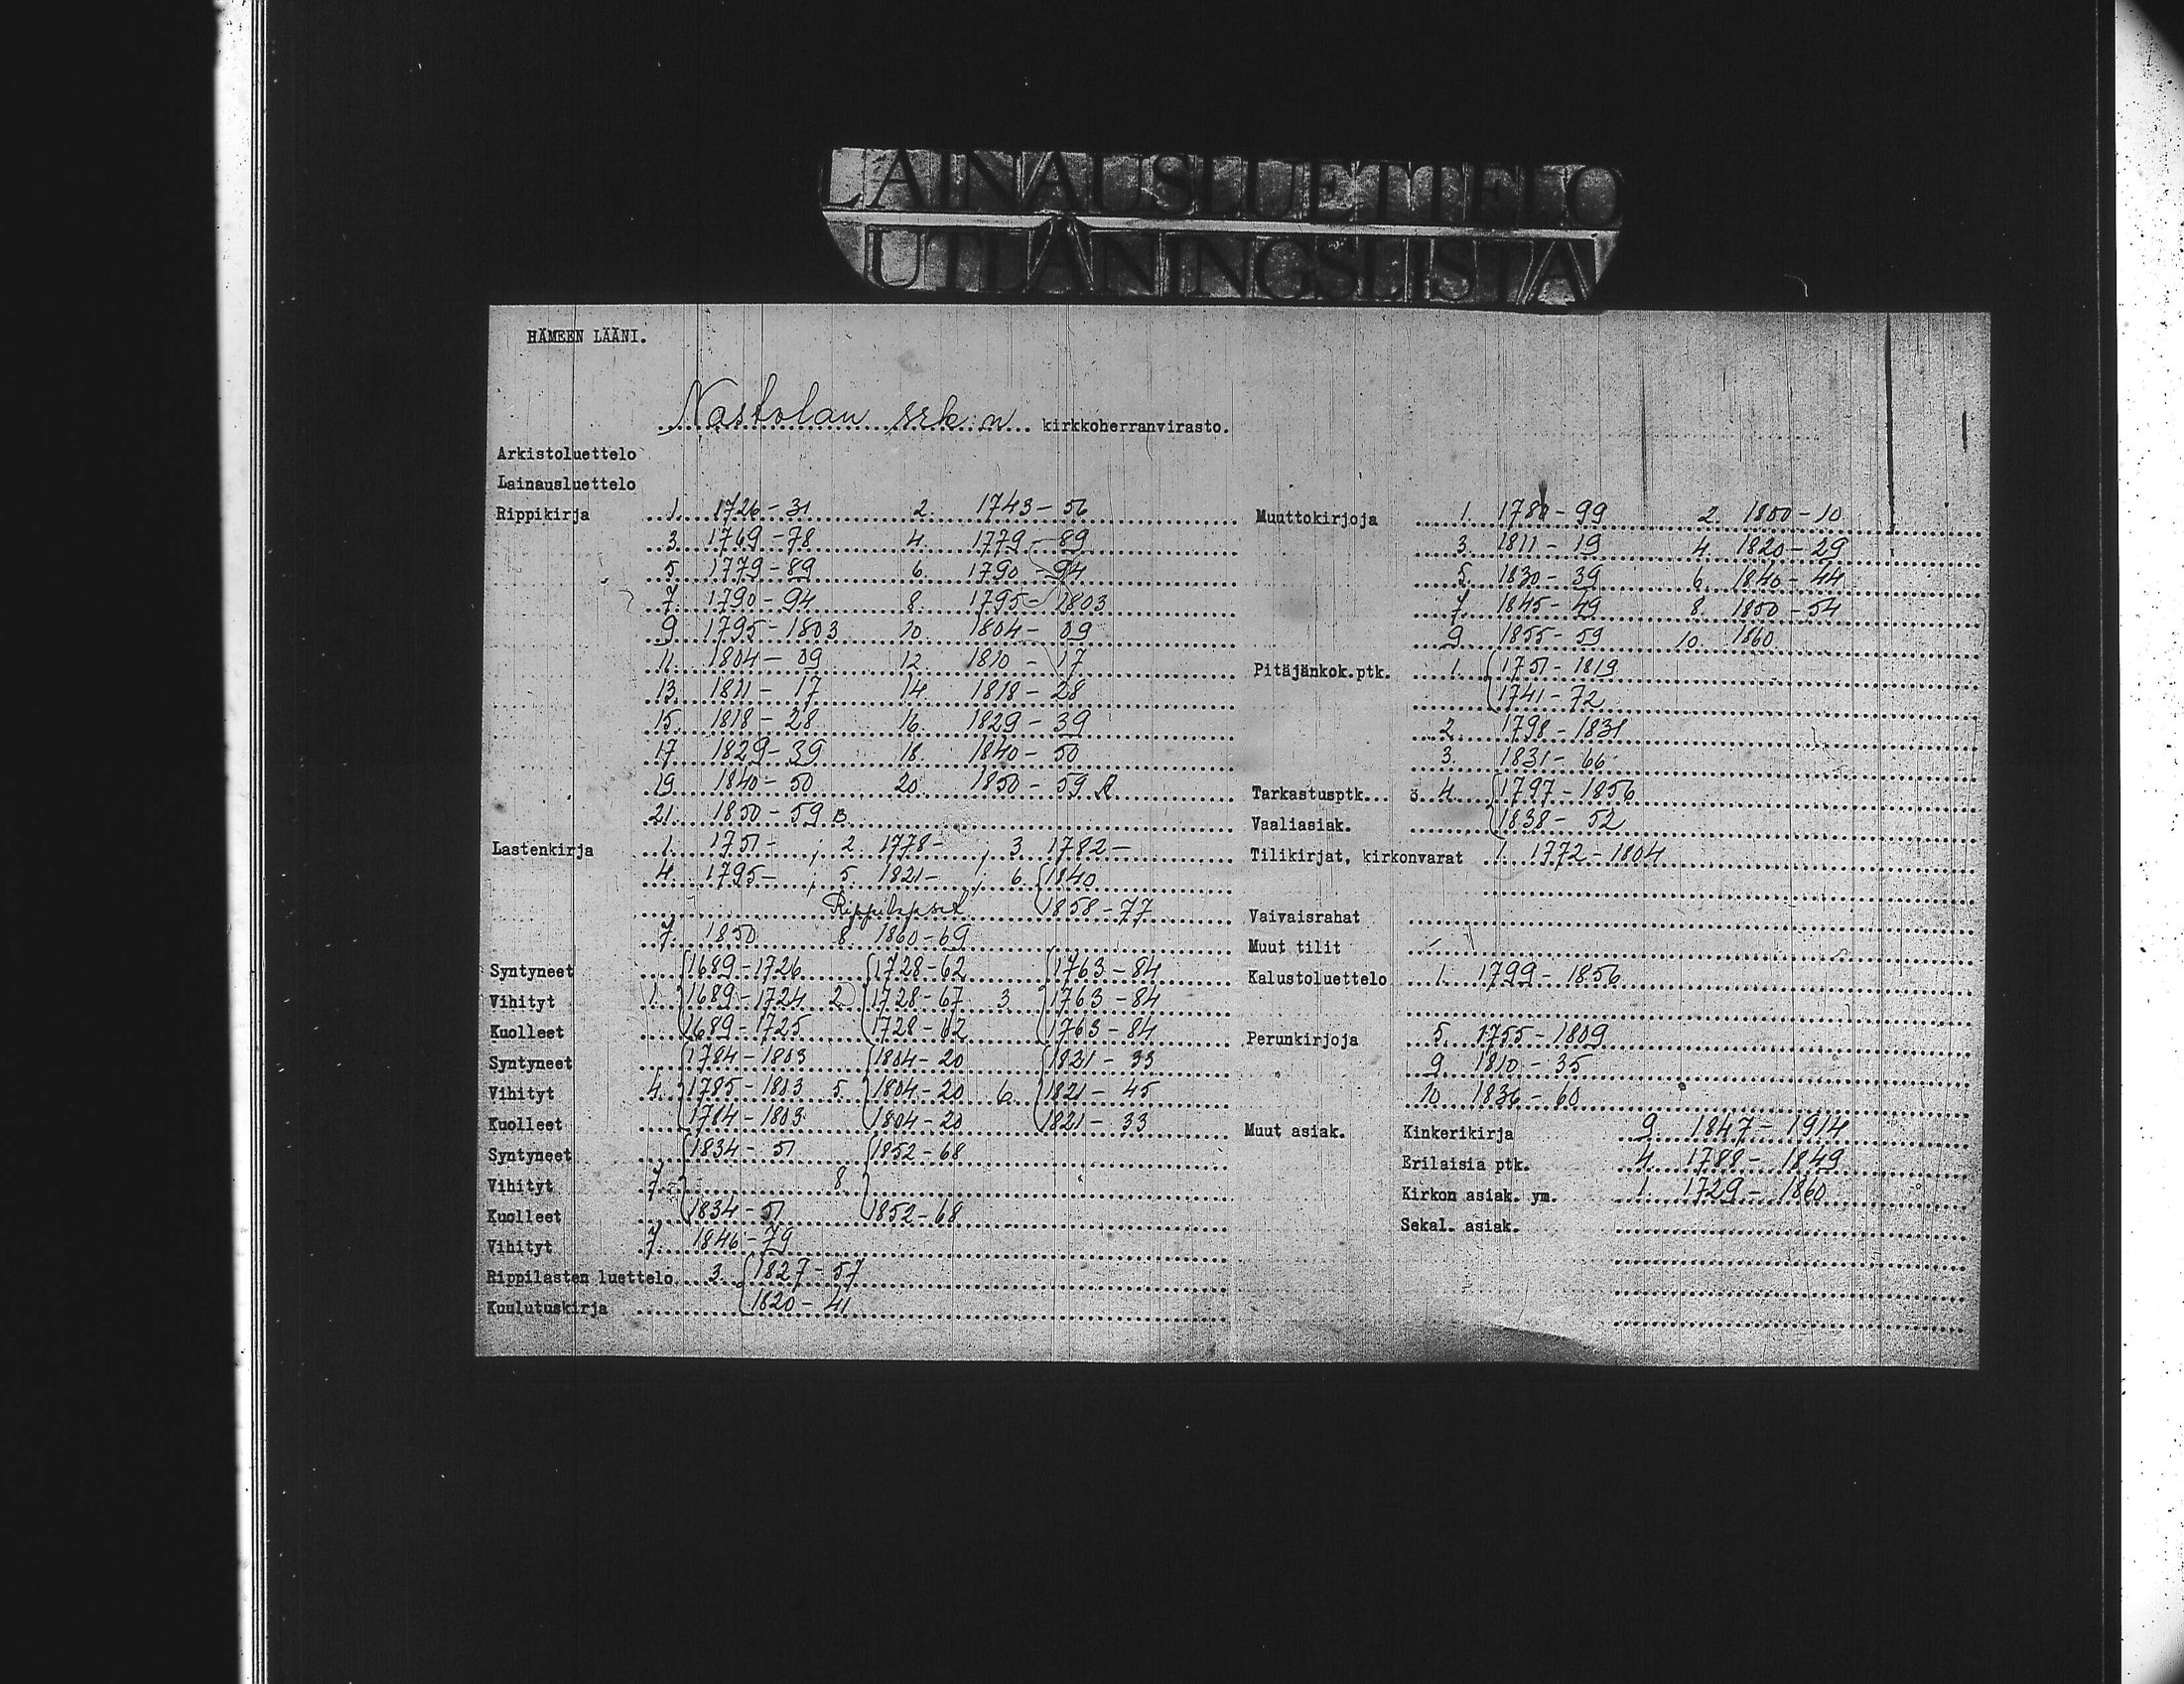 LAINAUSLUETTELO
UTLÅNINGSLISTA
HÄMEEN LÄÄNI.
Nastolan srk:n kirkkoherranvirasto.
Arkistoluettelo
Lainausluettelo
Rippikirja 1. 1726-31 2. 1743-56
3. 1769-78 4. 1779-89
5. 1779-89 6. 1790-94
7. 1790-94 8. 1795-1803
9 1795-1803 10. 1804-09
11. 1804-09 12. 1810-17
13. 1811-17 14. 1818-28
15. 1818-28 16. 1829-39
17 1829-39 18. 1840-50
19. 1840-50 20. 1850-59 A
21. 1850-59 B
Lastenkirja 1. 1751- ; 2. 1778- ; 3 1782-
4. 1795- ; 5. 1821- ; 6. 1840
Rippilapset 1858-77
7. 1850 8. 1860-69
Syntyneet 1689-1726 1728-62 1763-84
Vihityt 1. 1689-1724 2 1728-67 3 1763-84
Kuolleet 1689-1725 1728-62 1763-84
Syntyneet 1784-1803 1804-20 1821-33
Vihityt 4. 1785-1803 5. 1804-20 6. 1821-45
Kuolleet 1784-1803 1804-20 1821-33
Syntyneet 1834-51 1852-68
Vihityt 7. 8.
Kuolleet 1834-51 1852-68
Vihityt 7. 1846-79
Rippilasten luettelo 3. 1827-57
Kuulutuskirja 1820-41
Muuttokirjoja 1. 1780-99 2. 1800-10
3. 1811-19 4. 1820-29
5. 1830-39 6. 1840-44
7. 1845-49 8. 1850-54
9 1855-59 10. 1860
Pitäjänkok.ptk. 1. 1751-1819
1741-72
2. 1798-1831
3. 1831-66
Tarkastusptk. 4. 1797-1856
Vaaliasiak. 1838-52
Tilikirjat, kirkonvarat 1. 1772-1804
Vaivaisrahat
Muut tilit
Kalustoluettelo 1. 1799-1856
Perunkirjoja 5. 1755-1809
9. 1810-35
10. 1836-60
Muut asiak. Kinkerikirja 9. 1847-1914
Erilaisia ptk. 4. 1788-1849
Kirkon asiak. ym. 1. 1729-1860
Sekal. asiak.